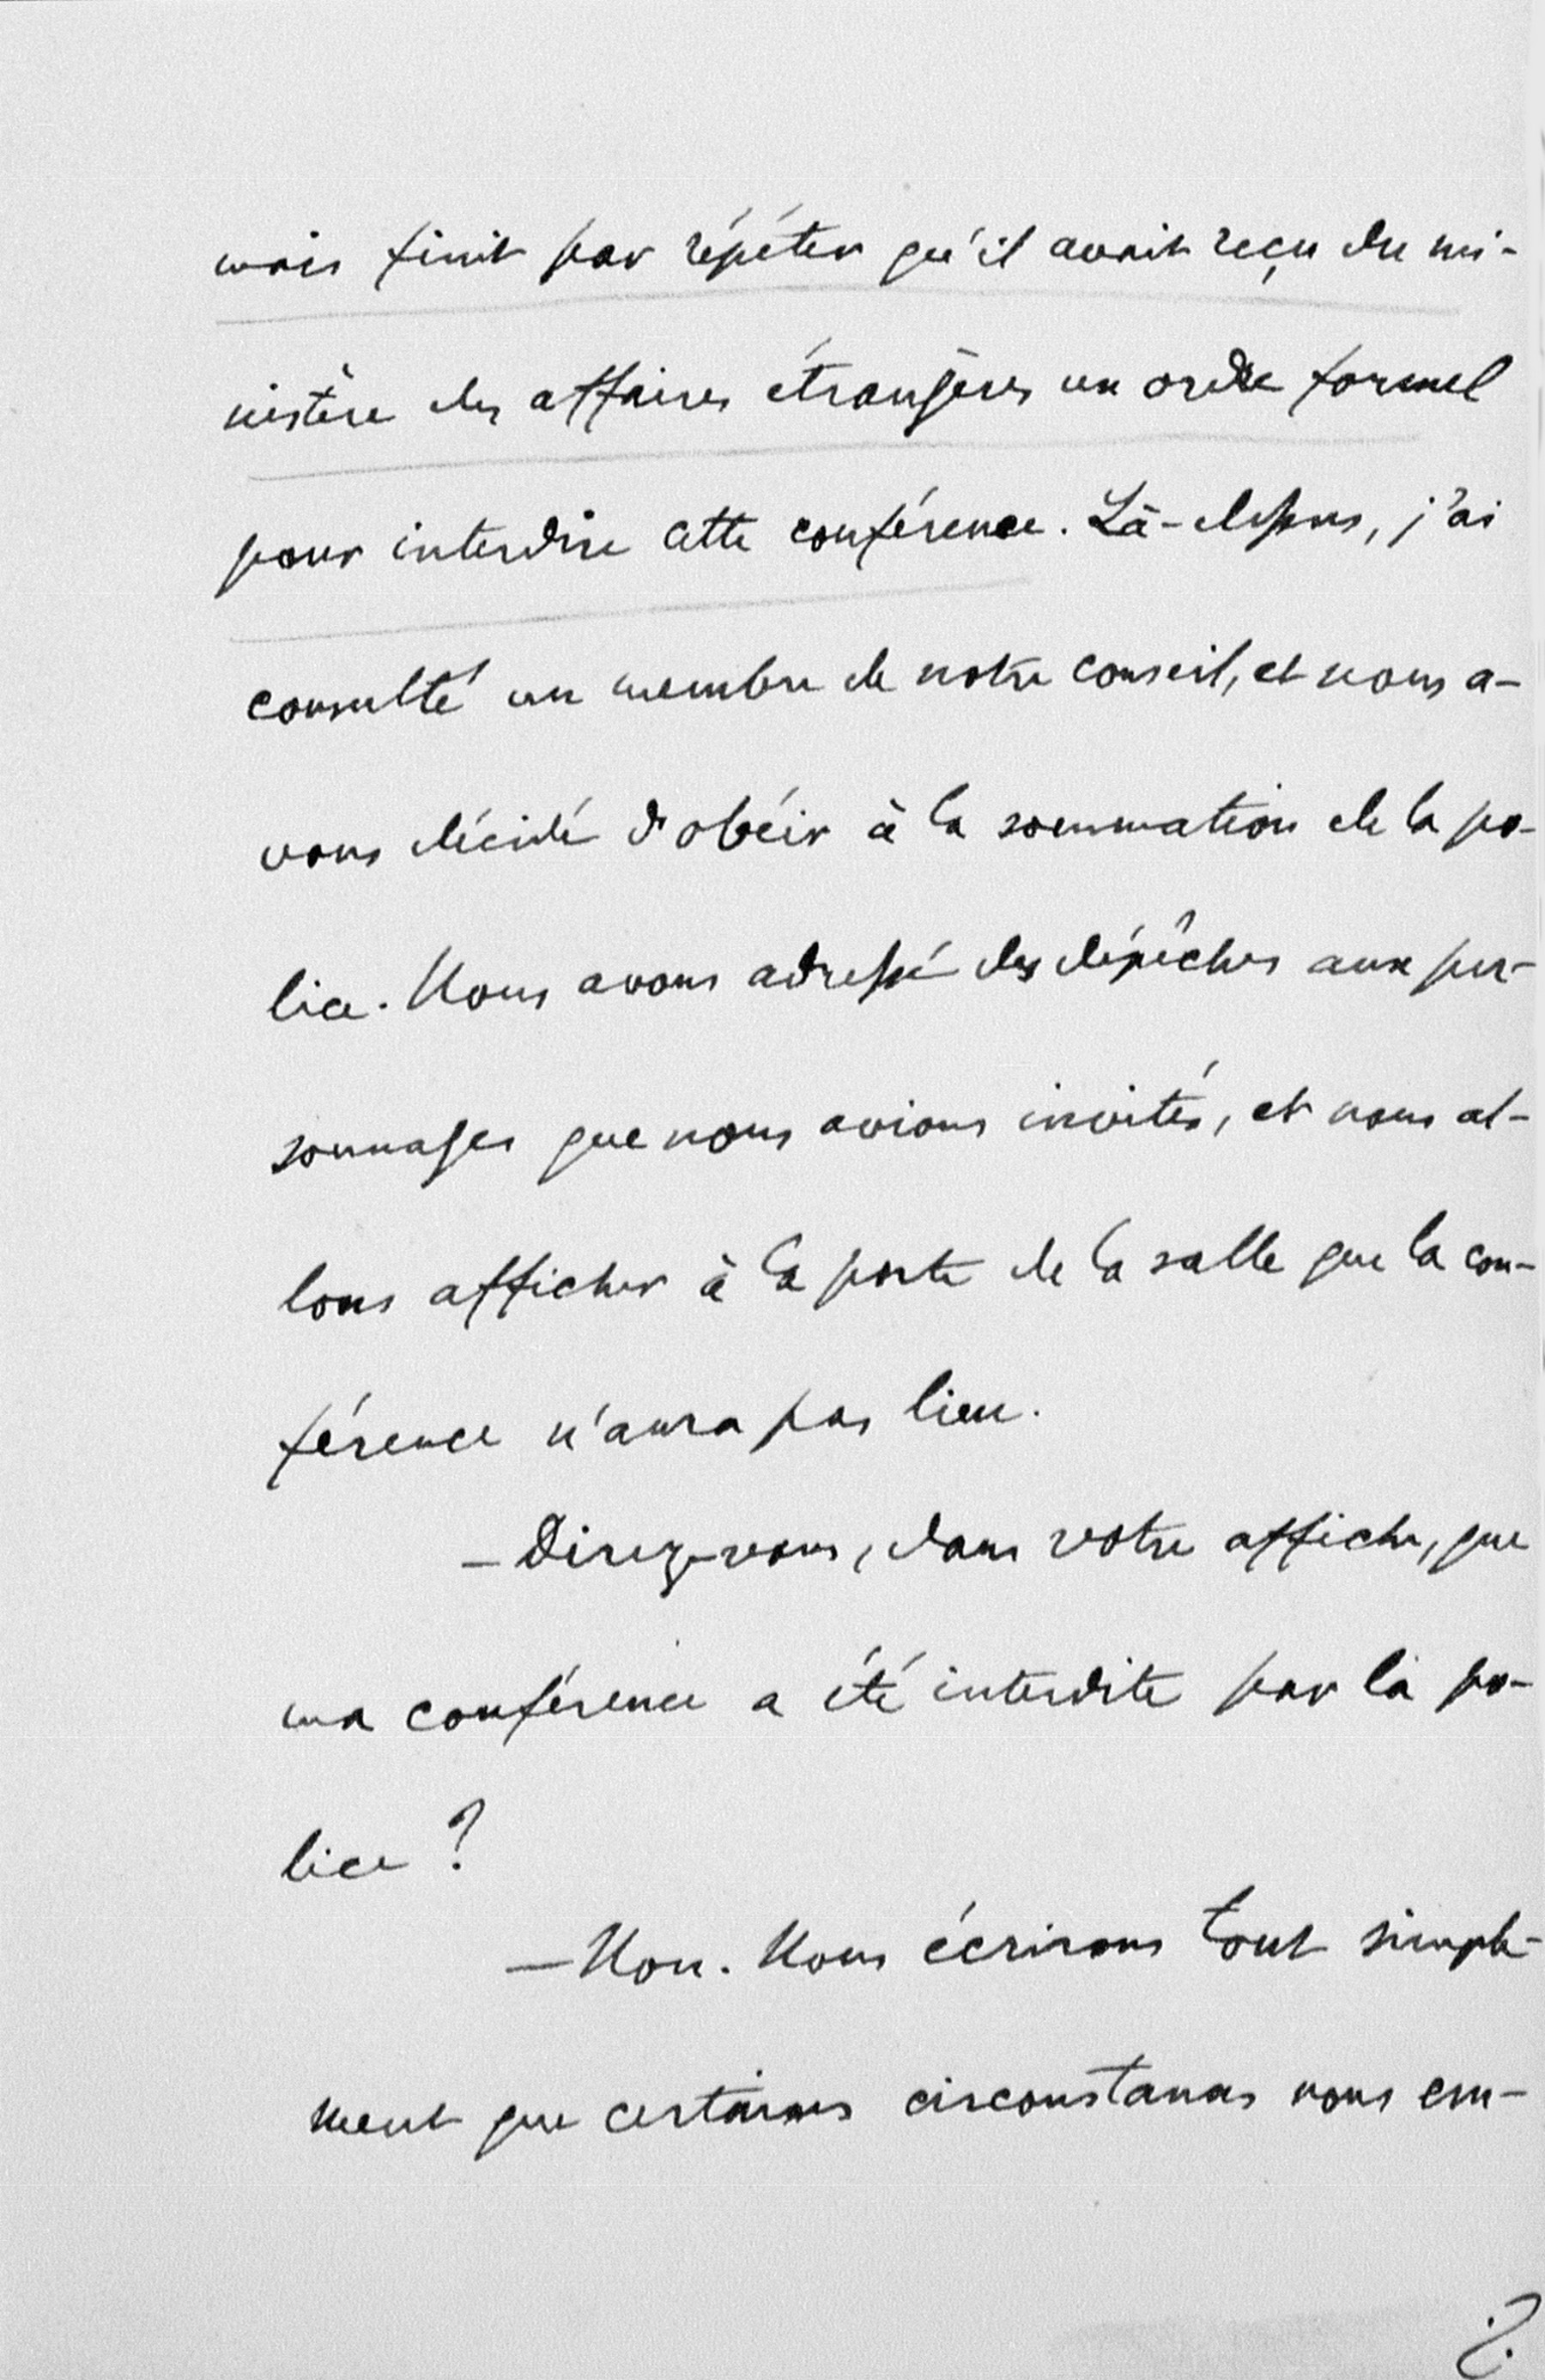 mais finit par répéter qu'il avait reçu du mi-
nistère des affaires étrangères un ordre formel
pour interdire cette conférence. Là-dessus, j'ai
consulté un membre de notre conseil, et nous a-
vons décidé d'obéir à la sommation de la po-
lice. Nous avons adressé des dépêches aux per-
sonnages que nous avions invités, et nous al-
lons afficher à la porte de la salle que la con-
férence n'aura pas lieu.
— Direz-vous, dans votre affiche, que
ma conférence a été interdite par la po-
lice ?
— Non. Nous écrirons tout simple-
ment que certaines circonstances nous em-